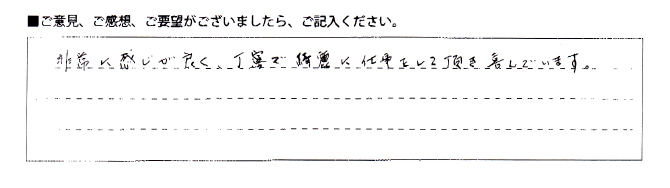 ■ご意見、ご感想、ご要望がございましたら、ご記入ください。
非常に感じが良く、丁寧で綺麗に仕事をして頂き喜んでいます。